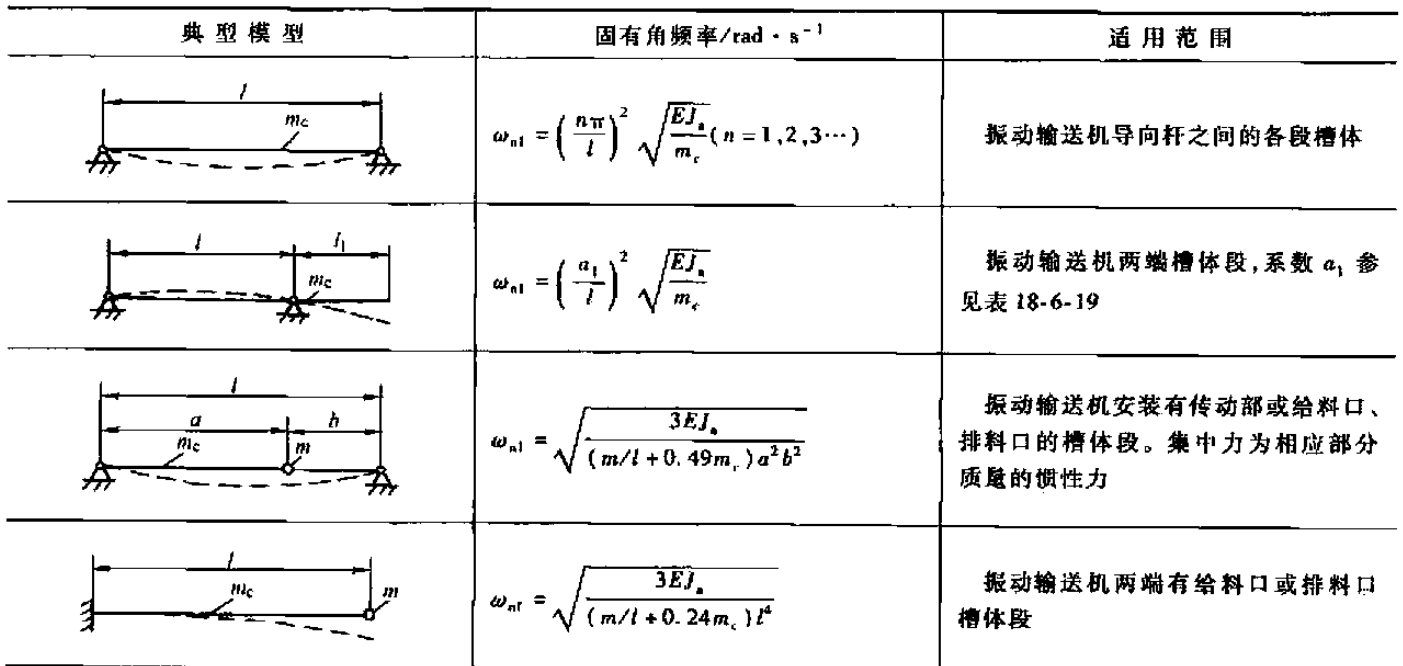 典型模型 固有角频率/rad·s⁻¹ 适用范围
l
m_c
ω_{n1} = (nπ/l)² √(EJ_a/m_c) (n = 1,2,3···)
振动输送机导向杆之间的各段槽体
l l₁
m_c
ω_{n1} = (a₁/l)² √(EJ_a/m_c)
振动输送机两端槽体段,系数 a₁ 参
见表 18-6-19
l
a b
m_c m
ω_{n1} = √(3EJ_a/((m/l + 0.49m_c)a²b²))
振动输送机安装有传动部或给料口、
排料口的槽体段。集中力为相应部分
质量的惯性力
l
m_c m
ω_{n1} = √(3EJ_a/((m/l + 0.24m_c)l⁴))
振动输送机两端有给料口或排料口
槽体段